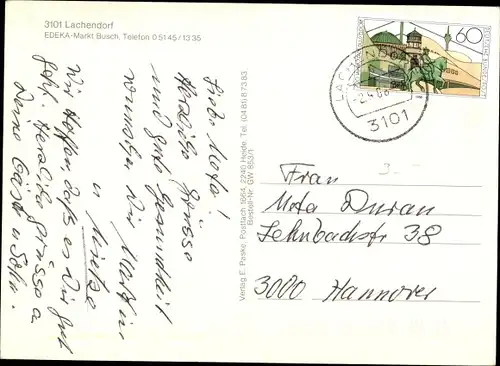 3101 Lachendorf
EDEKA-Markt Busch, Telefon 0 51 45 / 13 35
Liebe Meta!
Herzliche Grüsse
und gute Gesundheit
wünschen Dir Martin
u Mieke
Wir hoffen, dass es Dir gut
geht. Herzliche Grüsse a
Deine
Verlag E. Paske, Postfach 1664, 2240 Heide, Tel. (04 81) 8 73 83
Bestell-Nr. GW 853/1
60
LACHENDORF
3101
Frau
Meta Duran
Lehnbachstr 38
3000 Hannover